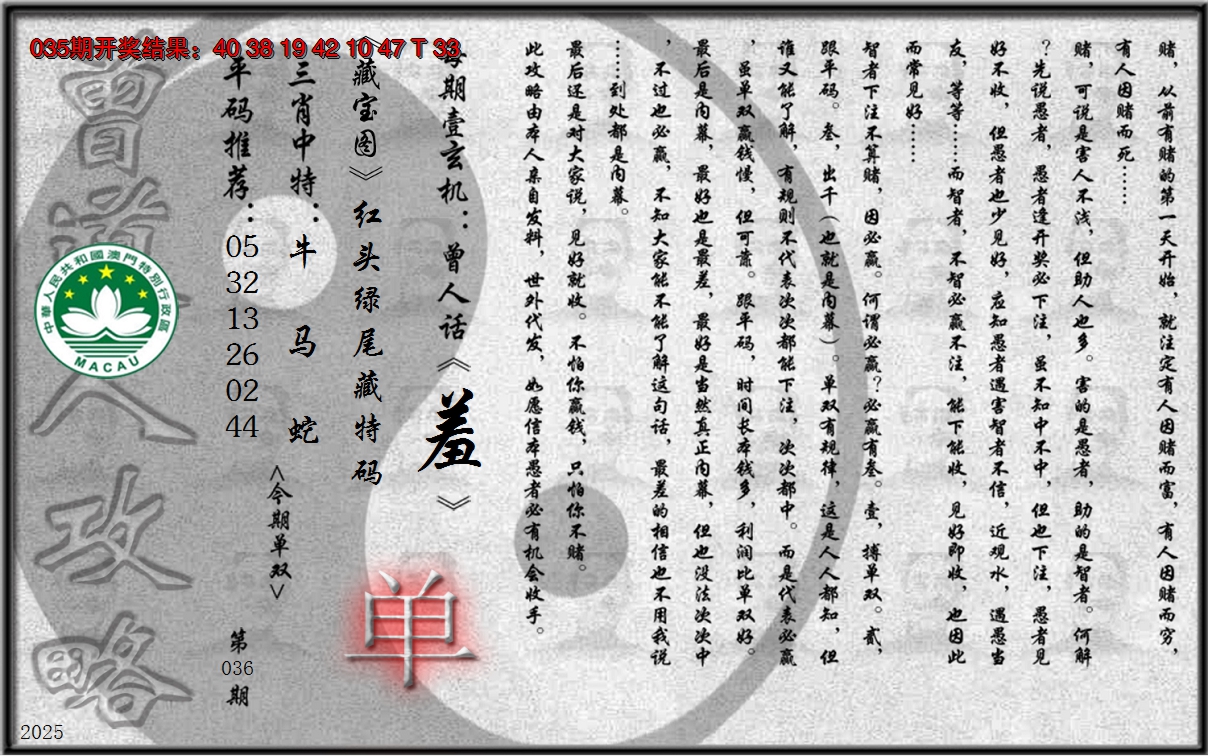 035期开奖结果：40 38 19 42 10 47 T 33
赌，从前有赌的第一天开始，就注定有人因赌而富，有人因赌而穷，
有人因赌而死……
赌，可说是害人不浅，但助人也多。害的是愚者，助的是智者。何解
？先说愚者，愚者逢开奖必下注，虽不知中不中，但也下注，愚者见
好不收，但愚者也少见好，应知愚者遇害智者不信，近观水，遇愚当
友，等等……而智者，不智必赢不注，能下能收，见好即收，也因此
而常见好……
智者下注不算赌，因必赢。何谓必赢？必赢有叁。壹，搏单双。贰，
跟平码。叁，出千（也就是内幕）。单双有规律，这是人人都知，但
谁又能了解，有规则不代表次次都能下注，次次都中。而是代表必赢
，虽单双赢钱慢，但可靠。跟平码，时间长本钱多，利润比单双好。
最后是内幕，最好也是最差，最好是当然真正内幕，但也没法次次中
，不过也必赢，不知大家能不能了解这句话，最差的相信也不用我说
……到处都是内幕。
最后还是对大家说，见好就收。不怕你赢钱，只怕你不赌。
此攻略由本人亲自发料，世外代发，如愿信本愚者必有机会收手。
每期壹玄机：曾人话《羞》
《藏宝图》红头绿尾藏特码
三肖中特：牛 马 蛇
平码推荐：05 32 13 26 02 44
<今期单双>
单
第036期
曾道人攻略
中華人民共和國澳門特別行政區
MACAU
2025